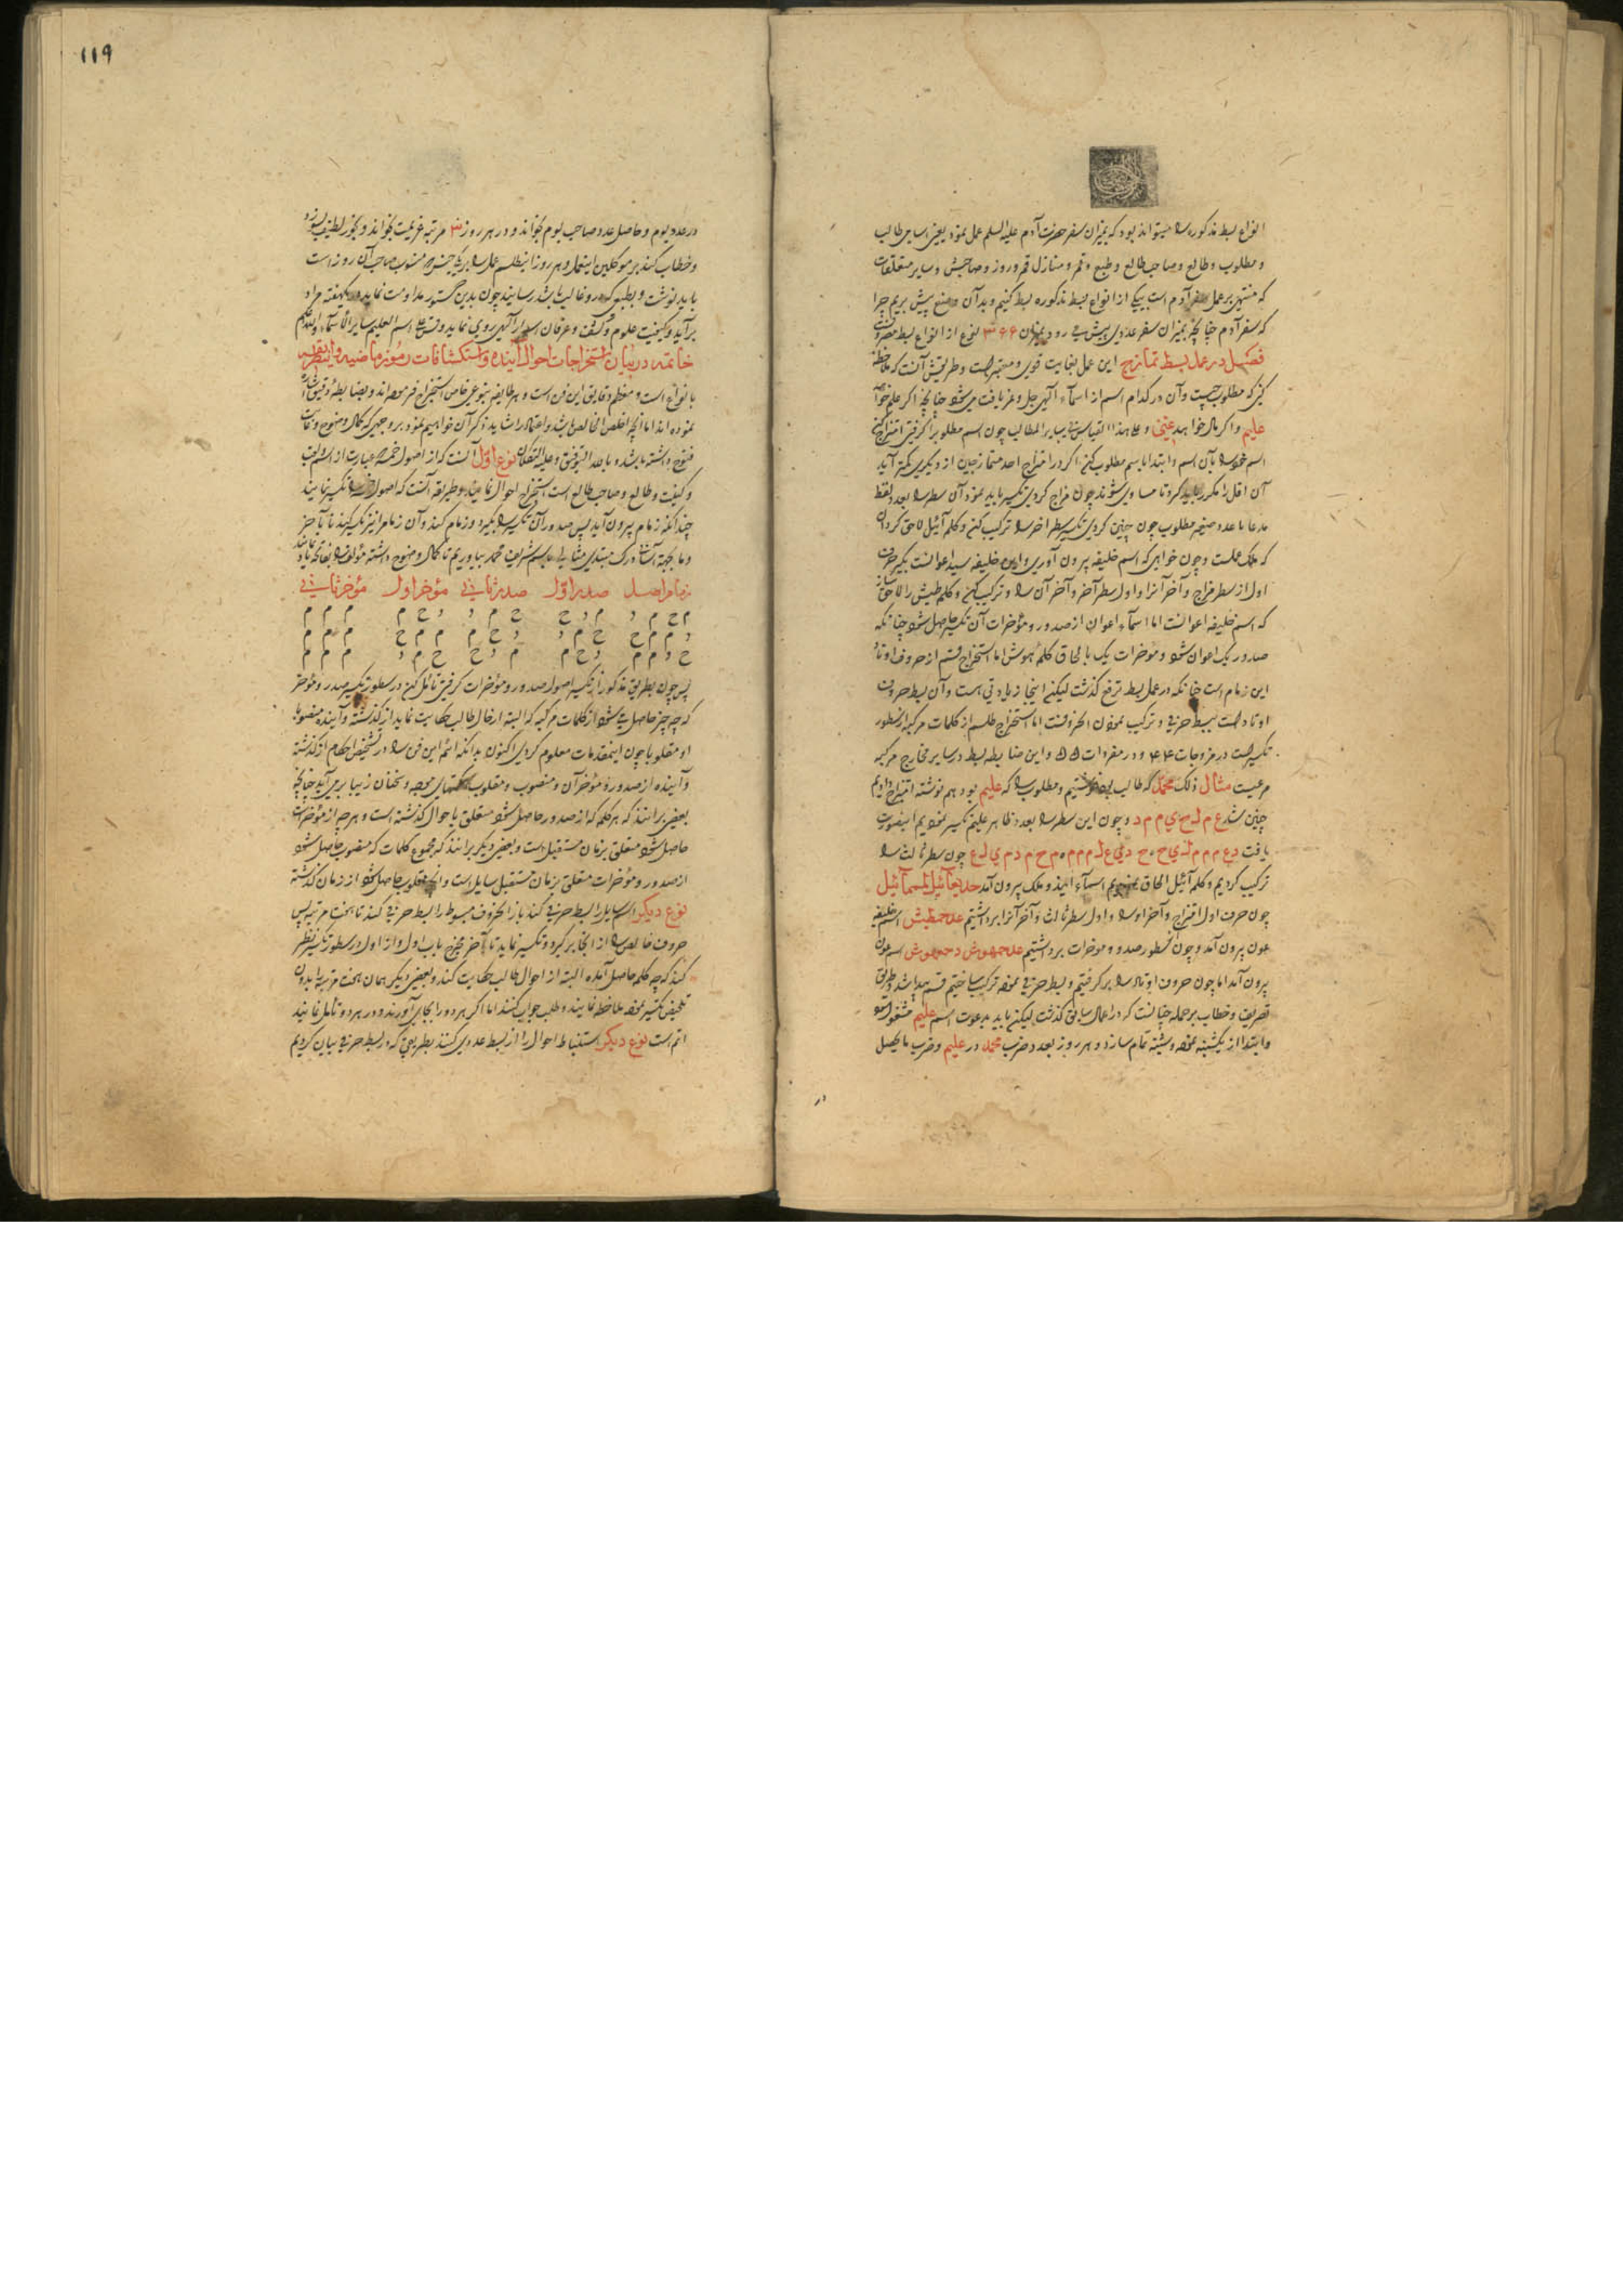 انواع بسط مذکوره را میتواند بود که بمیزان سفر حضرت آدم علیه السلم عمل نمود یعنی اسامی طالب
و مطلوب و طالع و صاحب طالع و طبع و قمر و منازل قمر و روز و صاحبش و سایر متعلقات
که منتهی بر عمل سفر آدم است بیکی از انواع بسط مذکوره بسط کنیم و بدآن وضع پیش بریم چرا
که سفر آدم چنانچه بمیزان سفر عددی پیش می رود بمیزان نوع از انواع بسط
فصل در عمل بسط تمازج این عمل بغایت قوی و معتبر است و طریقش آنست که ملاحظه
کنی که مطلوب چیست و آن در کدام اسم از اسمآء الهی جل و عز یافت می شود چنانچه اگر علم خواهد
علیم و اگر مال خواهد غنی و علی هذا القیاس فی سایر المطالب چون اسم مطلوب را گرفتی امتزاج کنی
اسم خود را بآن اسم و ابتدا باسم مطلوب کنی اگر در امتزاج احد متمازجین از دیگری کمتر آید
آن اقل را مکرر باید کرد تا مساوی شوند چون مزاج کردی تکسیر باید نمود آن سطر را بعدد لفظ
مدعا با عدد ضمیر مطلوب چون چنین کردی تکسیر سطر اخر را ترکیب کن و کلمه آئیل لاحق گردان
که ملک عملست و چون خواهی که اسم خلیفه بیرون آوری و این خلیفه سید اعوانست بگیر حرف
اول از سطر مزاج و آخر آنرا و اول سطر آخر و آخر آن را و ترکیب کن و کلمه طیش را لاحق ساز
که اسم خلیفه اعوانست اما اسمآء اعوان از صدور و مؤخرات آن تکسیر حاصل شود چنانکه
صدور یک اعوان شود و مؤخرات یک با لحاق کلمه هوش اما استخراج قسم از حروف اوتاد
این زمام است چنانکه در عمل بسط ترفع گذشت لیکن اینجا زیادتی هست و آن بسط حروف
اوتاد است ببسط حرفی و ترکیب نمودن الحروفست اما استخراج طلسم از کلمات مرکبه از سطور
تکسیر است در مزوجات ۴۴ و در مفردات ۵۵ و این ضابطه بسط در سایر مخارج مرکبه
مرعیست مثال ذلک محمد که طالب نوشتیم و مطلوب را که علیم بود هم نوشته امتزاج دادیم
چنین شد ع م ل ح ی م م د و چون این سطر را بعدد ظاهر علیم تکسیر نمودیم اینصورت
یافت چون سطر ثالث را
ترکیب کردیم و کلمه آئیل الحاق نمودیم اسمآء ملک بیرون آمد
چون حرف اول امتزاج و آخر او را و اول سطر ثالث و آخر آنرا برداشتیم عدحمطیش اسم خلیفه
عون بیرون آمد و چون از سطور صدور و مؤخرات برداشتیم اسم عون
بیرون آمد اما چون حروف اوتاد را بر گرفتیم و بسط حرفی نموده ترکیب ساختیم قسم پیدا شد و طریق
تصریف و خطاب بر جمله چنانست که در اعمال سابق گذشت لیکن باید بدعوت اسم علیم مشغول شود
و ابتدا از یکشنبه نموده و شنبه تمام سازد و هر روز بعدد ضرب محمد در علیم و ضرب ما یحصل
۱۱۹
در عدد یوم و حاصل عدد صاحب یوم بخواند و در هر روز ۳ مرتبه عزیمت بخواند و بخور لطیف بسوزد
و خطاب کند بر موکلین اینعمل و هر روز اینطلسم عمل را بر یک جنسی که منسوب صاحب آن روز است
باید نوشت و بطبعی که در و غالب باشد رسانید چون بدین دستور مداومت نماید در یکهفته مراد
برآید و کیفیت علوم و کشف و عرفان اسرار الهی روی نماید وقس علی اسم العلیم سایر الأسمآء
خاتمه در بیان استخراجات احوال آینده و استکشافات رموز ماضیه
بانواع است و معظم دقایق این فن است و هر طایفه بنوعی خاص استخراج فرموده اند و بضابطه دقیق اشاره
نموده اند اما آنچه اخلص الخالص باشد و اعتماد را شاید ذکر آن خواهیم نمود بر وجهی که کمال وضوح
داشته باشد و بالله التوفیق و علیه التکلان نوع اول آنست که از اصول خمسه عبارت از اسم و لقب
و کنیت و طالع و صاحب طالع است استخراج احوال نمایند و طریقه آنست که اصول خمسه را تکسیر نمایند
چندانکه زمام بیرون آید پس صدور آن تکسیر را بگیرد و زمام کند و آن زمام را نیز تکسیر کند تا بآخر
و ما بجهة آسانی درک مبتدی مثالی باسم شریف محمد بیاوریم تا کمال وضوح داشته
زمام اصل صدر اول صدر ثانی مؤخر اول مؤخر ثانی
م ح م د م د ح ح م د د ح م م م م
د م م ح ح م د د ح م م م ح م م م
ح د م م د ح م م د ح ح م د م م م
پس چون بطریق مذکور از تکسیر اصول صدور و مؤخرات گرفتی تأمل کن در سطور تکسیر صدر و مؤخر
که چه چیز حاصل می شود از کلمات مرکبه که البته از حال طالب حکایت نماید از گذشته و آینده منصوبا
او مقلوبا چون اینمقدمات معلوم کردی اکنون بدانکه ائمه این فن را در تشخیص احکام از گذشته
و آینده از صدور و مؤخر آن و منصوب و مقلوب سخنهای موجه و سخنان زیبا بر می آید چنانچه
بعضی برانند که هر کلمه که از صدور حاصل شود متعلق باحوال گذشته است و هر چه از مؤخرات
حاصل شود متعلق بزمان مستقبل است و بعضی دیگر برانند که مجموع کلمات که منصوب حاصل شود
از صدور و مؤخرات متعلق بزمان مستقبل سایل است و آنچه مقلوب حاصل شود از زمان گذشته
نوع دیگر اسم سایل را بسط حرفی کند باز الحروف مبسوط را بسط حرفی کند تا هفت مرتبه پس
حروف خالص را از آنجا بر گیرد و تکسیر نماید تا بآخر مخرج باب اول و از اول در سطور تکسیر نظر
کند که چه کلمه حاصل آمده البته از احوال طالب حکایت کند و بعضی دیگر همان هفت مرتبه را بدون
تلخیص تکسیر نموده ملاحظه نمایند و طلب جواب کنند اما اگر هر دو را بجای آورند و در هر دو تأمل نمایند
اتم است نوع دیگر استنباط احوال را از بسط عددی کنند بطریقی که در بسط حرفی بیان کردیم